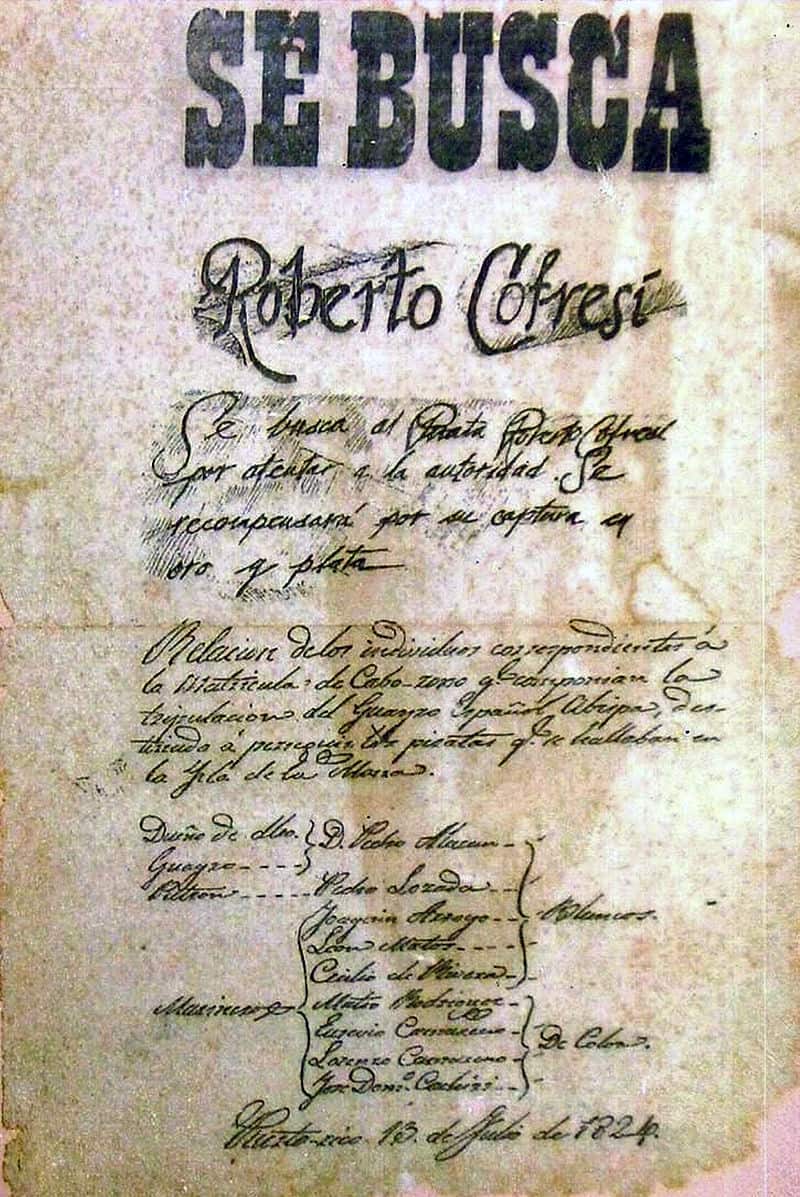 SE BUSCA
Roberto Cofresí
Se busca al Pirata Roberto Cofresí
por atentar a la autoridad. Se
recompensará por su captura en
oro y plata
Relacion de los individuos correspondientes á
la Matricula de Cabo-rojo q.e componian la
tripulacion del Guayro Español Abispa, des-
tinado á perseguir los piratas q.e se hallaban en
la Ysla de la Mona.
Dueño de dho. } D. Pedro Alacan
Guayro
Patron Pedro Lozada
Joaquin Arroyo Blancos.
Leon Matos
Cecilio de Rivera
Marineros Mateo Rodriguez
Eusevio Carrasquillo
De Color.
Lorenzo
Jose Dom.o
Puerto-rico 13 de Julio de 1824.